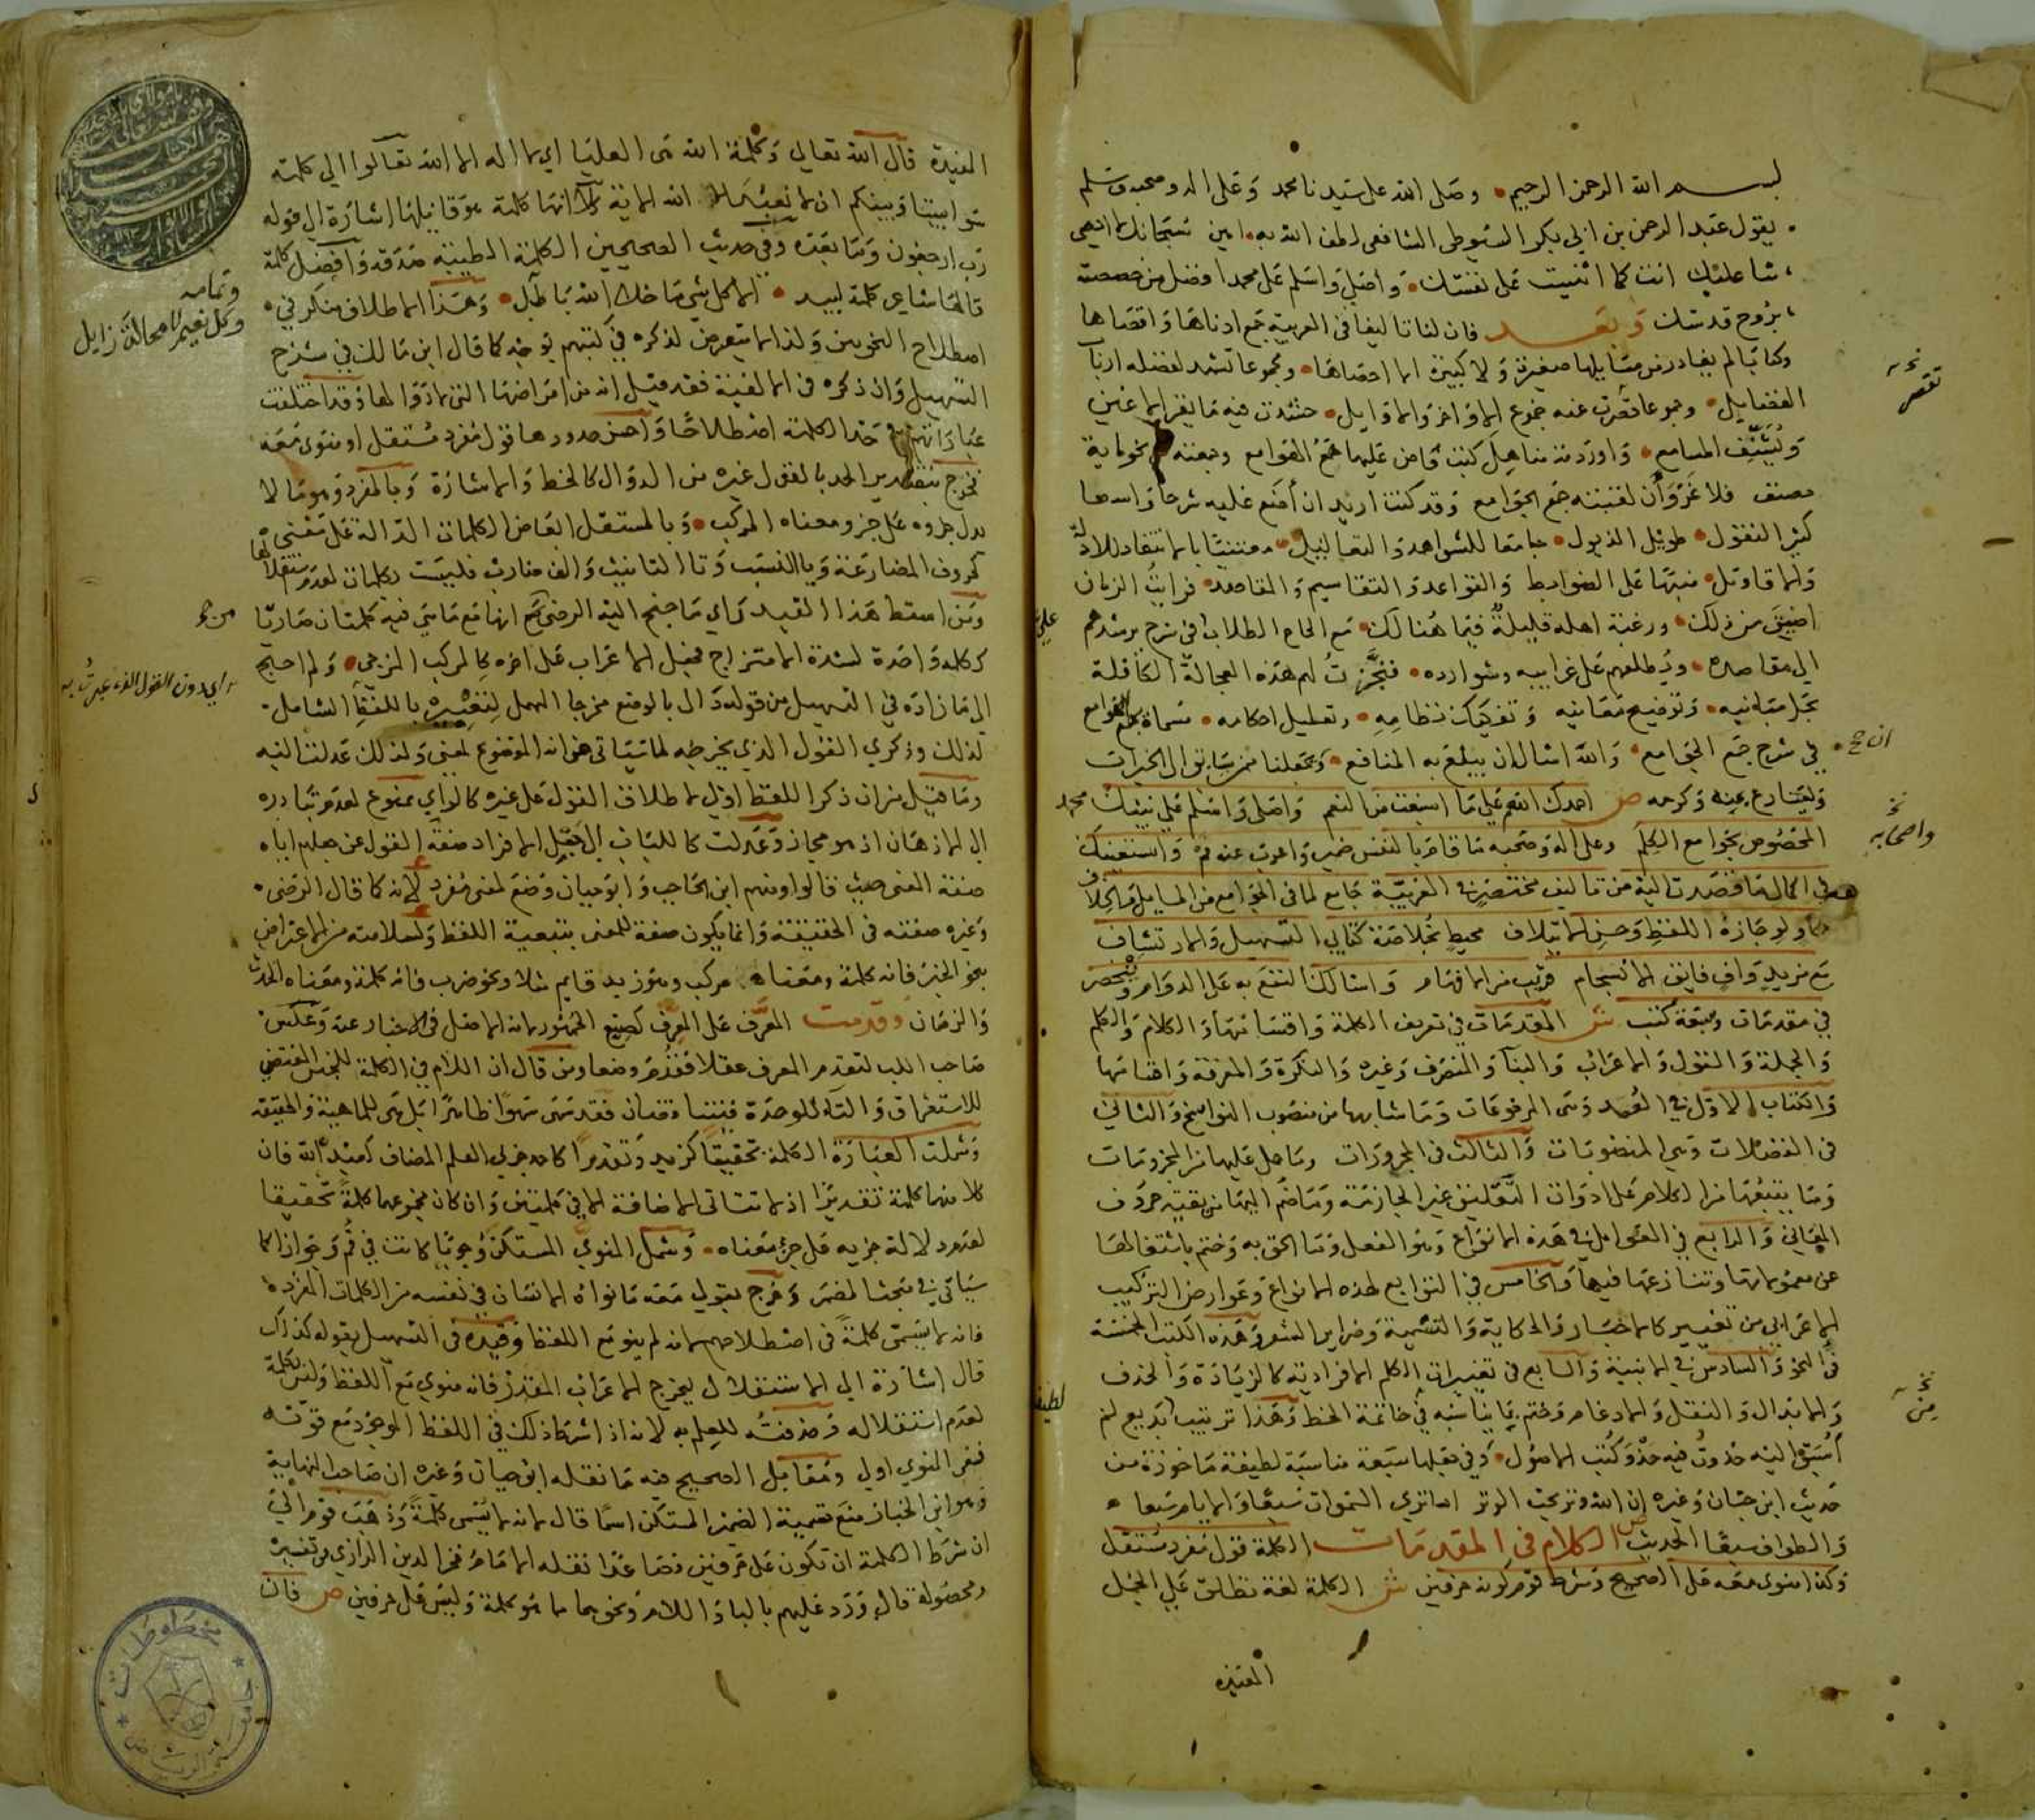 بسم الله الرحمن الرحيم وصلى الله على سيدنا محمد وعلى اله وصحبه وسلم
يقول عبد الرحمن بن ابي بكر السيوطي الشافعي لطف الله به امين سبحانك لا احصي
ثنا عليك انت كما اثنيت على نفسك واصلي واسلم على محمد افضل من خصصته
بروح قدسك وبعد فان لنا تاليفا في العربية جمع ادناها واقصاها
وكتابا لم يغادر من مسايلها صغيرة ولا كبيرة الا احصاها ومجموعا تشهد لفضله ارباب
الفضايل وجموعا قصرت عنه جموع الاواخر والاوايل حشدت فيه ما يقر الاعين
ويشنف المسامع واوردته مناهل كتب فاض عليها همع الهوامع وجمعته من نحو ماية
مصنف فلا غرو ان لقبته جمع الجوامع وقد كنت اريد ان اضع عليه شرحا واسعا
كثير النقول طويل الذيول جامعا للشواهد والتعاليل معتنيا بالانتقاد للادلة
والاقاويل منبها على الضوابط والقواعد والتقاسيم والمقاصد فرايت الزمان
اضيق من ذلك ورغبة اهله قليلة فيما هنالك مع الحاح الطلاب في شرح يرشدهم
الى مقاصده ويطلعهم على غرايبه وشوارده فنجزت لهم هذه العجالة الكافلة
بحل مبانيه وتوضيح معانيه وتفكيك نظامه وتعليل احكامه مسماة بهمع الهوامع
في شرح جمع الجوامع والله اسال ان يبلغ به المنافع ويجعلنا ممن يسابق الى الخيرات
ويسارع بمنه وكرمه ص احمدك اللهم على ما اسبغت من النعم واصلي واسلم على نبيك محمد
المخصوص بجوامع الكلم وعلى اله وصحبه ما قام بالنفس ضمير واعرب عنه فم واستعينك
في اكمال ما قصدت اليه من تاليف مختصر في العربية جامع لما في الجوامع من المسايل والخلاف
حاو لوجازة اللفظ وحسن الايتلاف محيط بخلاصة كتابي التسهيل والارتشاف
مع مزيد واف فايق الانسجام قريب من الافهام واسالك النفع به على الدوام وينحصر
في مقدمات وسبعة كتب ش المقدمات في تعريف الكلمة واقسامها والكلام والكلم
والجملة والقول والاعراب والبنا والمنصرف وغيره والنكرة والمعرفة واقسامها
والكتاب الاول في العمد وهي المرفوعات وما شابهها من منصوب النواسخ والثاني
في الفضلات وهي المنصوبات والثالث في المجرورات وما حمل عليها من المجزومات
وما يتبعها من الكلام على ادوات التعليق غير الجازمة وما ضم اليها من بقية حروف
المعاني والرابع في العوامل في هذه الانواع وهو الفعل وما الحق به وختم باشتغالها
عن معمولاتها وتنازعها فيها والخامس في التوابع لهذه الانواع وعوارض التركيب
الاعرابي من تغيير كالاخبار والحكاية والتسمية وضراير الشعر وهذه الكتب الخمسة
في النحو والسادس في الابنية والسابع في تغييرات الكلم الافرادية كالزيادة والحذف
والابدال والنقل والادغام وختم بما يناسبه في خاتمة الخط وهذا ترتيب بديع لم
اسبق اليه حذوت فيه حذو كتب الاصول وفي جعلها سبعة مناسبة لطيفة ماخوذة من
حديث ابن حبان وغيره ان الله وتر يحب الوتر اما ترى السموات سبعا والايام سبعا
والطواف سبعا الحديث ص الكلام في المقدمات الكلمة قول مفرد مستقل
وكذا منوي معه على الصحيح وشرط قوم كونه حرفين ش الكلمة لغة تطلق على الجمل
المفيدة
نخـ
تقصر
ان ح
نخـ
واصحابه
نخـ
من
المفيدة قال الله تعالى وكلمة الله هي العليا اي لا اله الا الله تعالوا الى كلمة
سوا بيننا وبينكم ان لا نعبد الا الله الاية كلا انها كلمة هو قايلها اشارة الى قوله
رب ارجعون وما بعده وفي حديث الصحيحين الكلمة الطيبة صدقة وافضل كلمة
قالها شاعر كلمة لبيد الا كل شي ما خلا الله باطل وهذا الاطلاق منكر في
اصطلاح النحويين ولذا لا يتعرض لذكره في كتبهم بوجه كما قال ابن مالك في شرح
التسهيل وان ذكره في الالفية فقد قيل انه من امراضها التي لا دوا لها وقد اختلفت
عباراتهم في حد الكلمة اصطلاحا واحسن حدودها قول مفرد مستقل او منوي معه
فخرج بتصدير الحد بالقول غيره من الدوال كالخط والاشارة وبالمفرد وهو ما لا
يدل جزوه على جزو معناه المركب وبالمستقل ابعاض الكلمات الدالة على معنى
كحروف المضارعة ويا النسب وتا التانيث والف ضارب فليست بكلمات لعدم استقلالها
ومن اسقط هذا القيد راى ما جنح اليه الرضي من انها مع ما هي فيه كلمتان صارتا
ككلمة واحدة لشدة الامتزاج فجعل الاعراب على اخره كالمركب المزجي ولم احتج
الى ما زاده في التسهيل من قوله دال بالوضع مخرجا المهمل لتعبيره باللفظ الشامل
لذلك وذكري القول الذي يخرجه لما سياتي من انه الموضوع لمعنى ولذلك عدلت اليه
وما قيل من ان ذكر اللفظ اولى لاطلاق القول على غيره كالراي ممنوع لعدم تبادره
الى الاذهان اذ هو مجاز وعدلت كاللباب الى جعل الافراد صفة القول عن جعلهم اياه
صفة المعنى حيث قالوا ومنهم ابن الحاجب وابو حيان وضع لمعنى مفرد لانه كما قال الرضي
وغيره صفته في الحقيقة وانما يكون صفة للمعنى بتبعية اللفظ ولسلامته من الاعتراض
بنحو الخبر فانه كلمة ومعناه مركب وهو زيد قايم مثلا ونحو ضرب فانه كلمة ومعناه الحدث
والزمان وقدمت المعرف على المعرف كصنع الجمهور لانه الاصل في الاخبار عنه وعكس
صاحب اللب لتقدم المعرف عقلا فقدم وضعا ومن قال ان اللام في الكلمة للجنس المقتضي
للاستغراق والتا للوحدة فيتناقضان فقد سها سهوا ظاهرا بل هي للماهية والحقيقة
وشملت العبارة الكلمة تحقيقا كزيد وتقديرا كاحد جزي العلم المضاف كعبد الله فان
كلا منهما كلمة تقديرا اذ لا تتاتى الاضافة الا في كلمتين وان كان مجموعهما كلمة تحقيقا
لعدم دلالة جزيه على جزء معناه وشمل المنوي المستكن وجوبا كانت في قم وجوازا كما
سياتي في مبحث المضمر وخرج بقولي معه ما نواه الانسان في نفسه من الكلمات المفردة
فانه لا يسمى كلمة في اصطلاحهم لانه لم ينو مع اللفظ وقيده في التسهيل بقوله كذلك
قال اشارة الى الاستقلال ليخرج الاعراب المقدر فانه منوي مع اللفظ وليس بكلمة
لعدم استقلاله وحذفته للعلم به لانه اذا اشترط ذلك في اللفظ الموجود مع قوته
ففي المنوي اولى ومقابل الصحيح فيه ما نقله ابو حيان وغيره ان صاحب النهاية
وهو ابن الخباز منع تسمية الضمير المستكن اسما قال لانه لا يسمى كلمة وذهب قوم الى
ان شرط الكلمة ان تكون على حرفين فصاعدا نقله الامام فخر الدين الرازي في تفسيره
ومحصوله قال ورد عليهم بالبا واللام ونحوهما مما هو كلمة وليس على حرفين ص فان
وتمامه
وكل نعيم لا محالة زايل
اي دون القول الذي عبرت به
مخطوطات